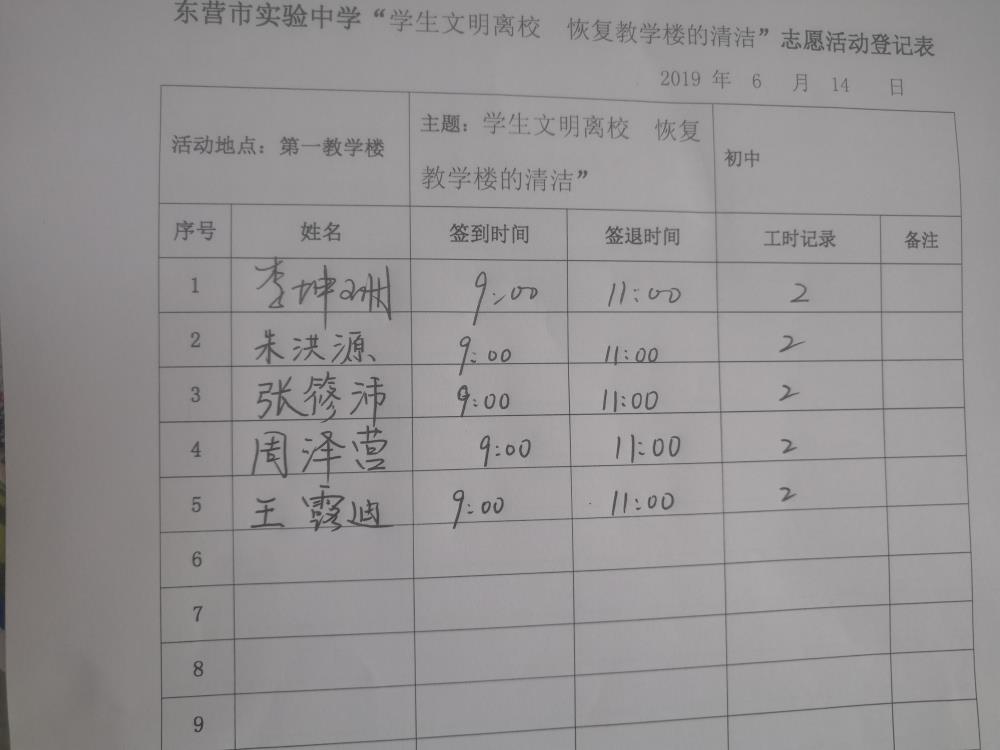 东营市实验中学“学生文明离校 恢复教学楼的清洁”志愿活动登记表
2019 年 6 月 14 日
活动地点：第一教学楼 主题：学生文明离校 恢复教学楼的清洁” 初中
序号 姓名 签到时间 签退时间 工时记录 备注
1 李坤珊 9:00 11:00 2
2 朱洪源 9:00 11:00 2
3 张修沛 9:00 11:00 2
4 周泽营 9:00 11:00 2
5 王露迪 9:00 11:00 2
6
7
8
9